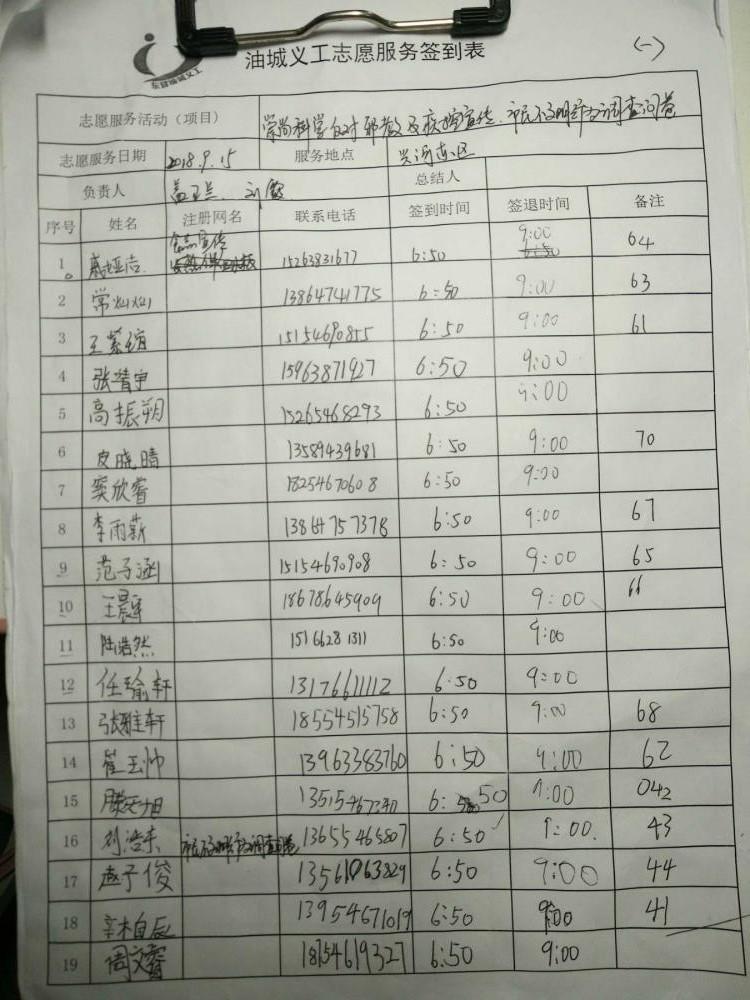 东营油城义工
油城义工志愿服务签到表 (一)
志愿服务活动（项目） 崇尚科学反对邪教及疾控宣传、市民不文明行为调查问卷
志愿服务日期 2018.9.15 服务地点 兴河东区
负责人 总结人
序号 姓名 注册网名 联系电话 签到时间 签退时间 备注
1 15263831677 6:50 9:00 64
2 常灿灿 13864741775 6:50 9:00 63
3 15154690855 6:50 9:00 61
4 张普宇 15963871927 6:50 9:00
5 高振朔 15265468293 6:50 9:00
6 皮晓晴 13589439681 6:50 9:00 70
7 窦欣睿 18254670608 6:50 9:00
8 李雨薪 13864757378 6:50 9:00 67
9 范子涵 15154690908 6:50 9:00 65
10 18678645909 6:50 9:00 66
11 陆浩然 15166281311 6:50 9:00
12 任瑜轩 13176611112 6:50 9:00
13 张雅轩 18554515758 6:50 9:00 68
14 崔玉帅 13963383760 6:50 9:00 62
15 滕天旭 6:50 9:00 042
16 刘浩东 市民不文明行为调查问卷 13655465807 6:50 9:00 43
17 赵子俊 13561063829 6:50 9:00 44
18 13954671019 6:50 9:00 41
19 周文睿 18754619327 6:50 9:00